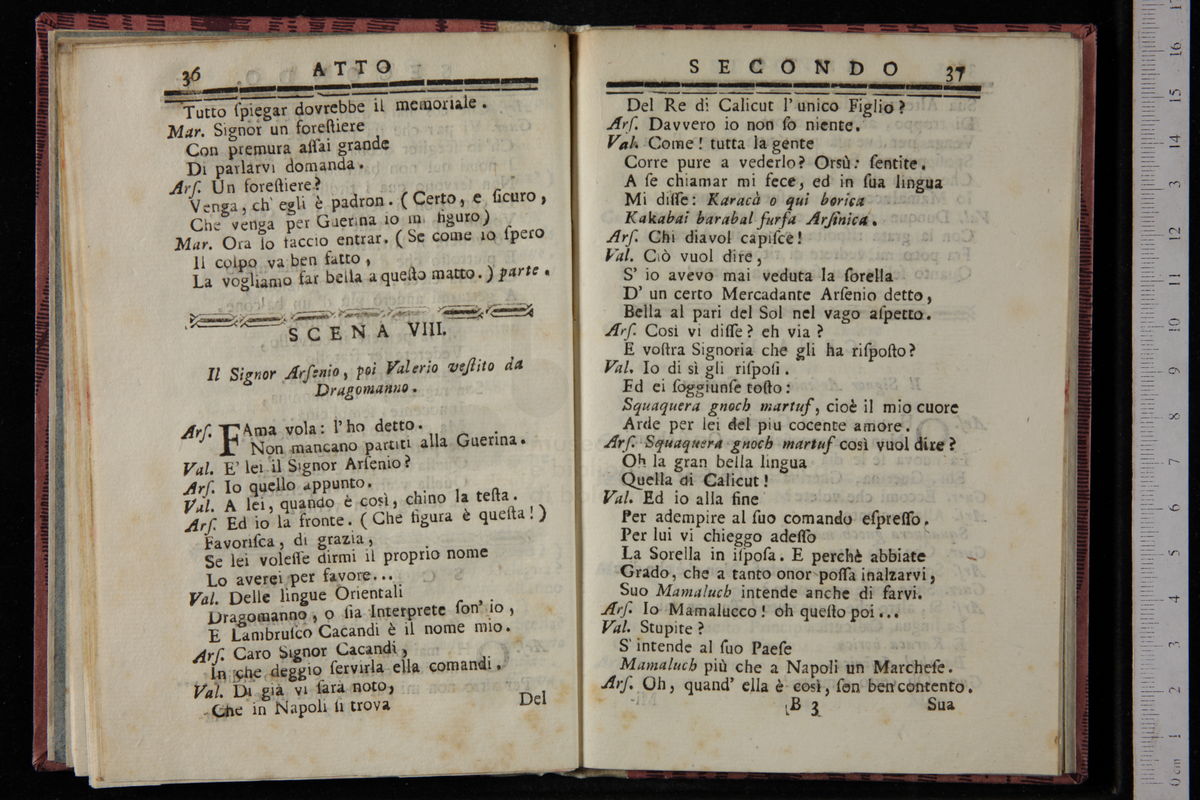 36 ATTO
Tutto ſpiegar dovrebbe il memoriale.
Mar. Signor un foreſtiere
Con premura aſſai grande
Di parlarvi domanda.
Arſ. Un foreſtiere?
Venga, ch' egli è padron. (Certo, e ſicuro,
Che venga per Guerina io m figuro)
Mar. Ora lo faccio entrar. (Se come io ſpero
Il colpo va ben fatto,
La vogliamo far bella a queſto matto.) parte.
SCENA VIII.
Il Signor Arſenio, poi Valerio veſtito da
Dragomanno.
Arſ. FAma vola: l'ho detto.
Non mancano partiti alla Guerina.
Val. E' lei il Signor Arſenio?
Arſ. Io quello appunto.
Val. A lei, quando è così, chino la teſta.
Arſ. Ed io la fronte. (Che figura è queſta!)
Favoriſca, di grazia,
Se lei voleſſe dirmi il proprio nome
Lo averei per favore...
Val. Delle lingue Orientali
Dragomanno, o ſia Interprete ſon' io,
E Lambruſco Cacandi è il nome mio.
Arſ. Caro Signor Cacandi,
In che deggio ſervirla ella comandi.
Val. Di già vi ſarà noto,
Che in Napoli ſi trova
Del
SECONDO 37
Del Re di Calicut l'unico Figlio?
Arſ. Davvero io non ſo niente.
Val. Come! tutta la gente
Corre pure a vederlo? Orsù: ſentite.
A ſe chiamar mi fece, ed in ſua lingua
Mi diſſe: Karacà o qui borica
Kakabai barabal furfa Arſinica.
Arſ. Chi diavol capiſce!
Val. Ciò vuol dire,
S' io avevo mai veduta la ſorella
D' un certo Mercadante Arſenio detto,
Bella al pari del Sol nel vago aſpetto.
Arſ. Così vi diſſe? eh via?
E voſtra Signoria che gli ha riſpoſto?
Val. Io di sì gli riſpoſi.
Ed ei ſoggiunſe toſto:
Squaquera gnoch martuf, cioè il mio cuore
Arde per lei del piu cocente amore.
Arſ. Squaquera gnoch martuf così vuol dire?
Oh la gran bella lingua
Quella di Calicut!
Val. Ed io alla fine
Per adempire al ſuo comando eſpreſſo.
Per lui vi chieggo adeſſo
La Sorella in iſpoſa. E perchè abbiate
Grado, che a tanto onor poſſa inalzarvi,
Suo Mamaluch intende anche di farvi.
Arſ. Io Mamalucco! oh queſto poi...
Val. Stupite?
S' intende al ſuo Paeſe
Mamaluch più che a Napoli un Marcheſe.
Arſ. Oh, quand' ella è così, ſon ben contento.
B 3 Sua